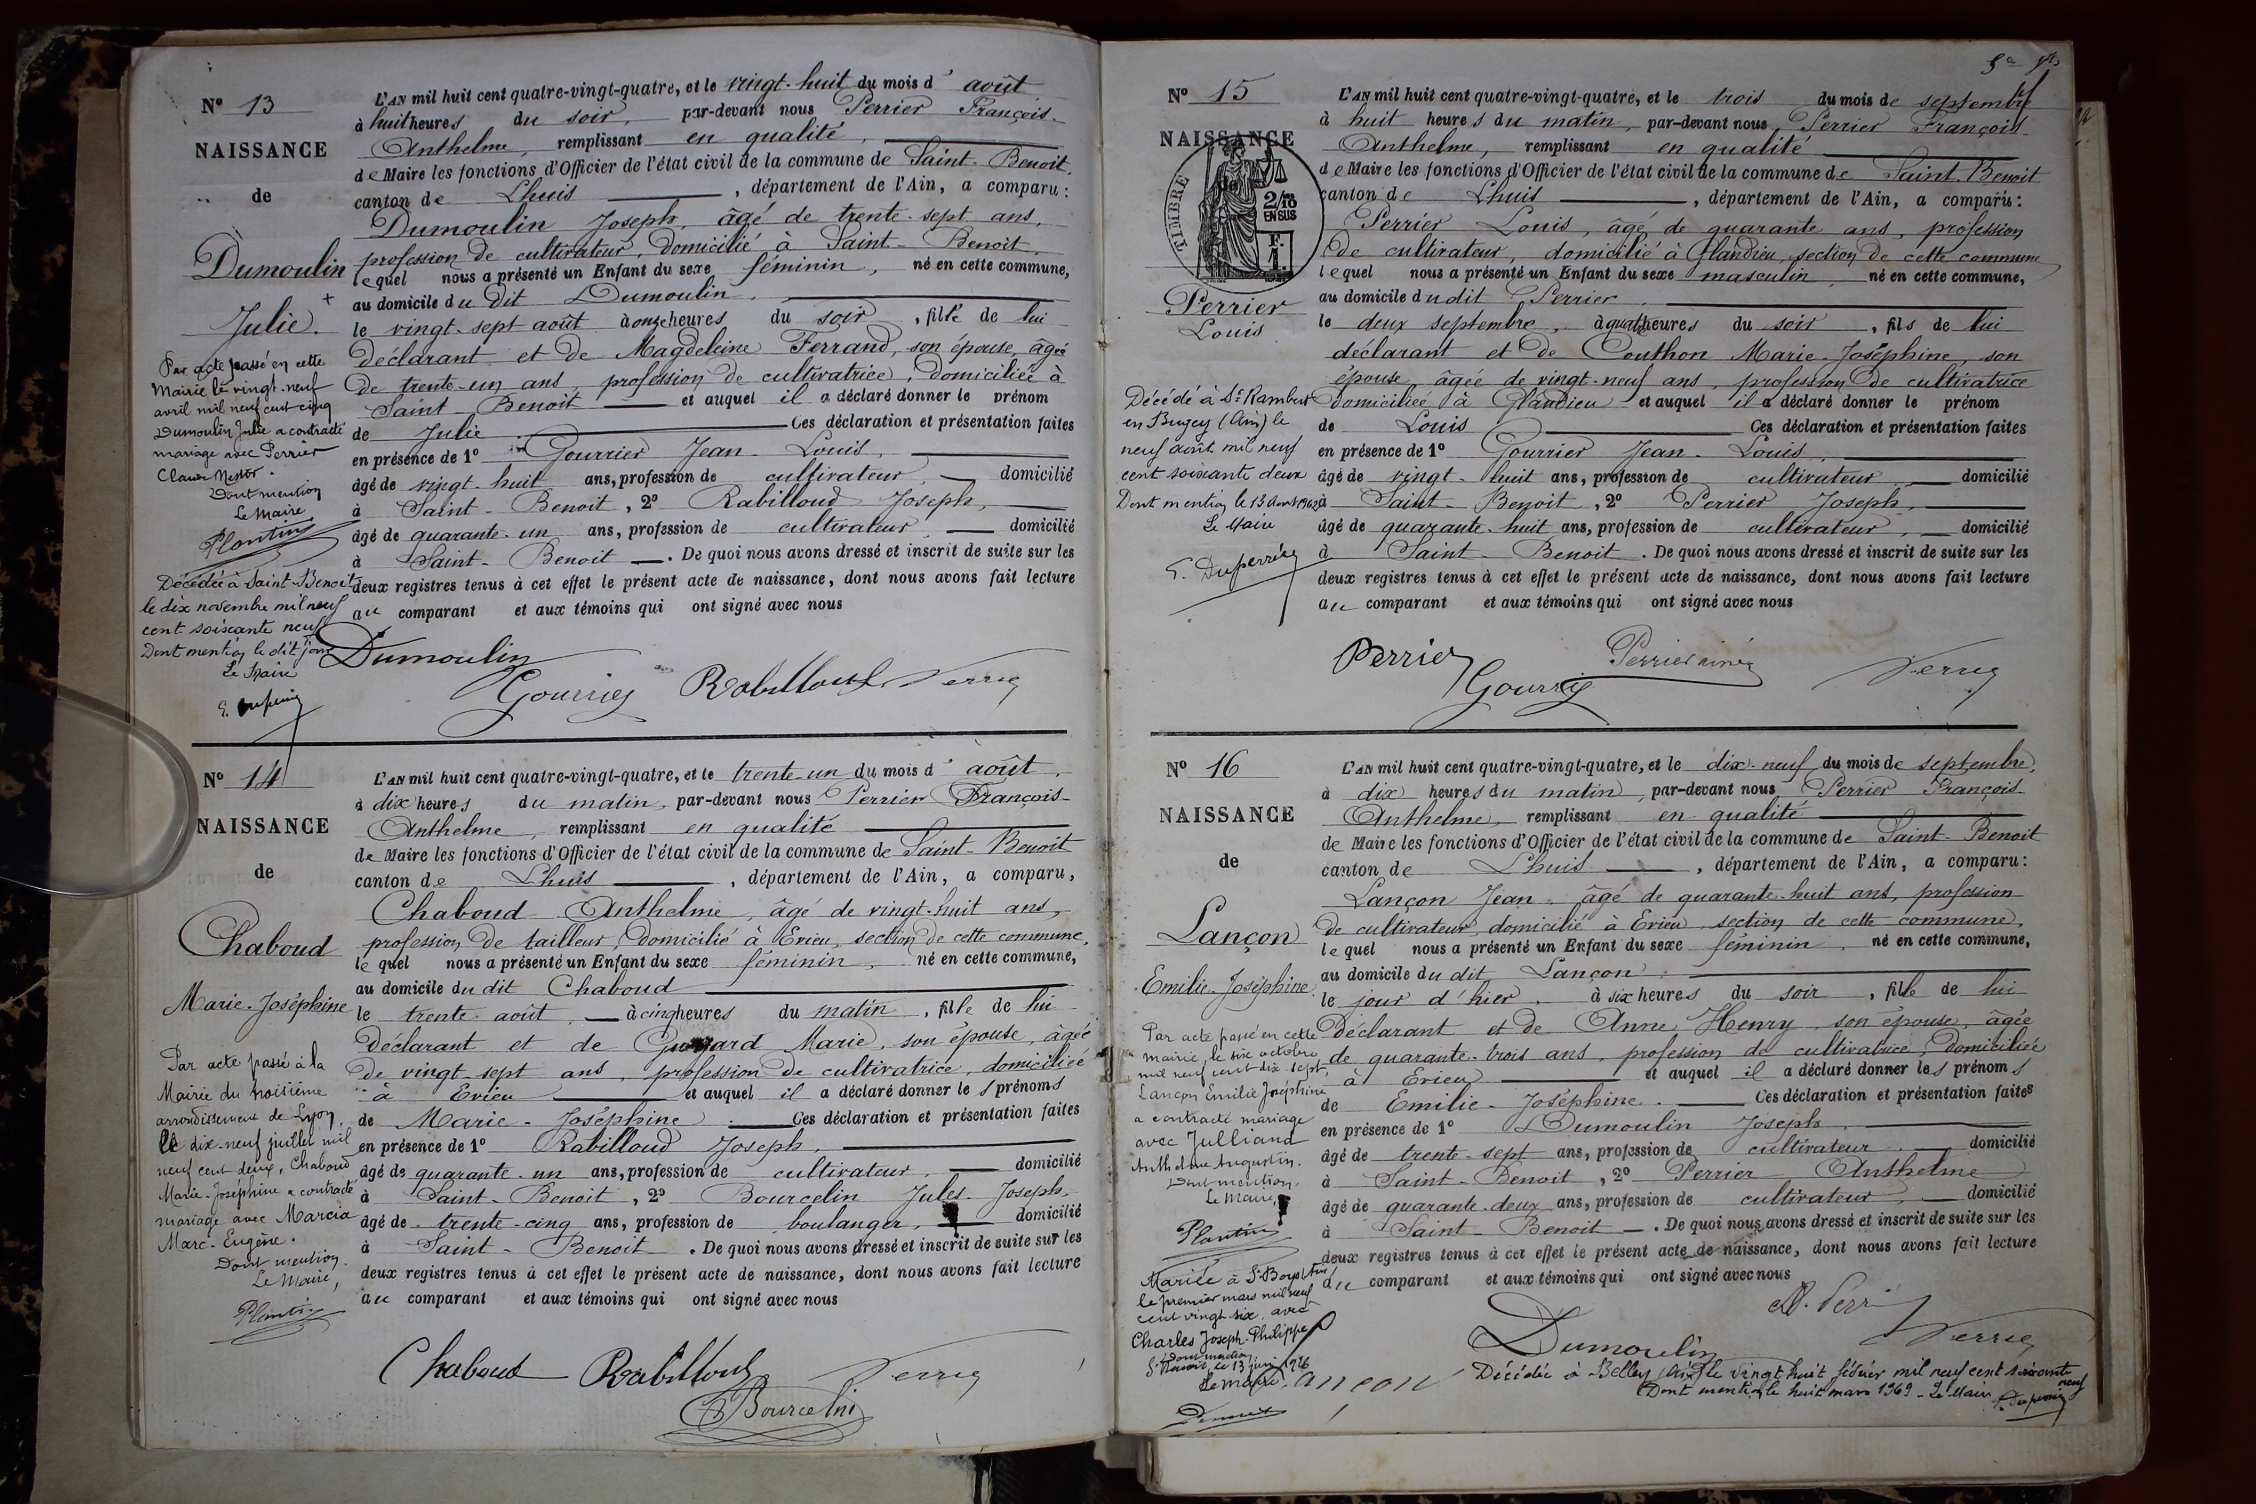 Nº 13
NAISSANCE
de
Dumoulin
Julie.
Par acte passé en cette
Mairie le vingt-neuf
avril mil neuf cent cinq
Dumoulin Julie a contracté
mariage avec Perrier
Claude Nestor.
Dont mention
Le Maire
Plantin
Décédée à Saint-Benoit
le dix novembre mil neuf
cent soixante neuf
Dont mention le dit jour
Le Maire
L'AN mil huit cent quatre-vingt-quatre, et le vingt-huit du mois d'août
à huit heures du soir, par-devant nous Perrier François-
Anthelme, remplissant en qualité
de Maire les fonctions d'Officier de l'état civil de la commune de Saint-Benoit,
canton de Lhuis, département de l'Ain, a comparu:
Dumoulin Joseph, âgé de trente-sept ans,
profession de cultivateur, domicilié à Saint-Benoit
lequel nous a présenté un Enfant du sexe féminin, né en cette commune,
au domicile du dit Dumoulin.
le vingt-sept août à onze heures du soir, fille de lui
déclarant et de Magdeleine Ferrand, son épouse, âgée
de trente-un ans, profession de cultivatrice, domiciliée à
Saint-Benoit et auquel il a déclaré donner le prénom
de Julie Ces déclaration et présentation faites
en présence de 1º Gourrier Jean-Louis,
âgé de vingt-huit ans, profession de cultivateur, domicilié
à Saint-Benoit, 2º Rabilloud Joseph,
âgé de quarante-un ans, profession de cultivateur, domicilié
à Saint-Benoit. De quoi nous avons dressé et inscrit de suite sur les
deux registres tenus à cet effet le présent acte de naissance, dont nous avons fait lecture
au comparant et aux témoins qui ont signé avec nous
Dumoulin
Gourrier Rabilloud Perrier
Nº 14
NAISSANCE
de
Chaboud
Marie-Joséphine
Par acte passé à la
Mairie du troisième
arrondissement de Lyon,
le dix-neuf juillet mil
neuf cent deux, Chaboud
Marie-Joséphine a contracté
mariage avec Marcia
Marc-Eugène.
Dont mention.
Le Maire,
Plantin
L'AN mil huit cent quatre-vingt-quatre, et le trente-un du mois d'août,
à dix heures du matin, par-devant nous Perrier François-
Anthelme, remplissant en qualité
de Maire les fonctions d'Officier de l'état civil de la commune de Saint-Benoit
canton de Lhuis, département de l'Ain, a comparu,
Chaboud Anthelme, âgé de vingt-huit ans,
profession de tailleur, domicilié à Evieu, section de cette commune,
lequel nous a présenté un Enfant du sexe féminin, né en cette commune,
au domicile du dit Chaboud
le trente août, à cinq heures du matin, fille de lui
déclarant et de Marie, son épouse, âgée
de vingt-sept ans, profession de cultivatrice, domiciliée
à Evieu et auquel il a déclaré donner les prénoms
de Marie-Joséphine. Ces déclaration et présentation faites
en présence de 1º Rabilloud Joseph,
âgé de quarante-un ans, profession de cultivateur, domicilié
à Saint-Benoit, 2º Bourcelin Jules-Joseph,
âgé de trente-cinq ans, profession de boulanger, domicilié
à Saint-Benoit. De quoi nous avons dressé et inscrit de suite sur les
deux registres tenus à cet effet le présent acte de naissance, dont nous avons fait lecture
au comparant et aux témoins qui ont signé avec nous
Chaboud Rabilloud Perrier
Bourcelin
Nº 15
NAISSANCE
de
TIMBRE
2/10 EN SUS
F. 1.
Perrier
Louis
Décédé à St Rambert
en Bugey (Ain) le
neuf août mil neuf
cent soixante deux
Dont mention le 13 août 1962
Le Maire
L'AN mil huit cent quatre-vingt-quatre, et le trois du mois de septembre
à huit heures du matin, par-devant nous, Perrier François-
Anthelme, remplissant en qualité
de Maire les fonctions d'Officier de l'état civil de la commune de Saint-Benoit
canton de Lhuis, département de l'Ain, a comparu:
Perrier Louis, âgé de quarante ans, profession
de cultivateur, domicilié à Glandieu, section de cette commune
lequel nous a présenté un Enfant du sexe masculin, né en cette commune,
au domicile du dit Perrier.
le deux septembre, à quatre heures du soir, fils de lui
déclarant et de Couthon Marie-Joséphine, son
épouse, âgée de vingt-neuf ans, profession de cultivatrice
domiciliée à Glandieu et auquel il a déclaré donner le prénom
de Louis Ces déclaration et présentation faites
en présence de 1º Gourrier Jean-Louis,
âgé de vingt-huit ans, profession de cultivateur, domicilié
à Saint-Benoit, 2º Perrier Joseph,
âgé de quarante-huit ans, profession de cultivateur, domicilié
à Saint-Benoit. De quoi nous avons dressé et inscrit de suite sur les
deux registres tenus à cet effet le présent acte de naissance, dont nous avons fait lecture
au comparant et aux témoins qui ont signé avec nous
Perrier Perrier ainé
Gourrier Perrier
Nº 16
NAISSANCE
de
Lançon
Emilie-Joséphine
Par acte passé en cette
mairie, le six octobre
mil neuf cent dix sept,
Lançon Emilie Joséphine
a contracté mariage
avec Julliand
Anthelme Augustin.
Dont mention.
Le Maire,
Plantin
Mariée à
le premier mars mil neuf
cent vingt-six, avec
Charles Joseph-Philippe
Dont mention
St Benoit, le 13 juin 1926
Le Maire
L'AN mil huit cent quatre-vingt-quatre, et le dix-neuf du mois de septembre,
à dix heures du matin, par-devant nous, Perrier François-
Anthelme, remplissant en qualité
de Maire les fonctions d'Officier de l'état civil de la commune de Saint-Benoit
canton de Lhuis, département de l'Ain, a comparu:
Lançon Jean, âgé de quarante-huit ans, profession
de cultivateur, domicilié à Evieu, section de cette commune,
lequel nous a présenté un Enfant du sexe féminin, né en cette commune,
au domicile du dit Lançon.
le jour d'hier, à six heures du soir, fille de lui
déclarant et de Anne Henry, son épouse, âgée
de quarante-trois ans, profession de cultivatrice, domiciliée
à Evieu et auquel il a déclaré donner les prénoms
de Emilie-Joséphine. Ces déclaration et présentation faites
en présence de 1º Dumoulin Joseph,
âgé de trente-sept ans, profession de cultivateur, domicilié
à Saint-Benoit, 2º Perrier Anthelme
âgé de quarante-deux ans, profession de cultivateur, domicilié
à Saint-Benoit. De quoi nous avons dressé et inscrit de suite sur les
deux registres tenus à cet effet le présent acte de naissance, dont nous avons fait lecture
au comparant et aux témoins qui ont signé avec nous
Dumoulin Perrier
Lançon
Décédée à Belley (Ain) le vingt huit février mil neuf cent soixante
neuf
Dont mention le huit mars 1969 - Le Maire